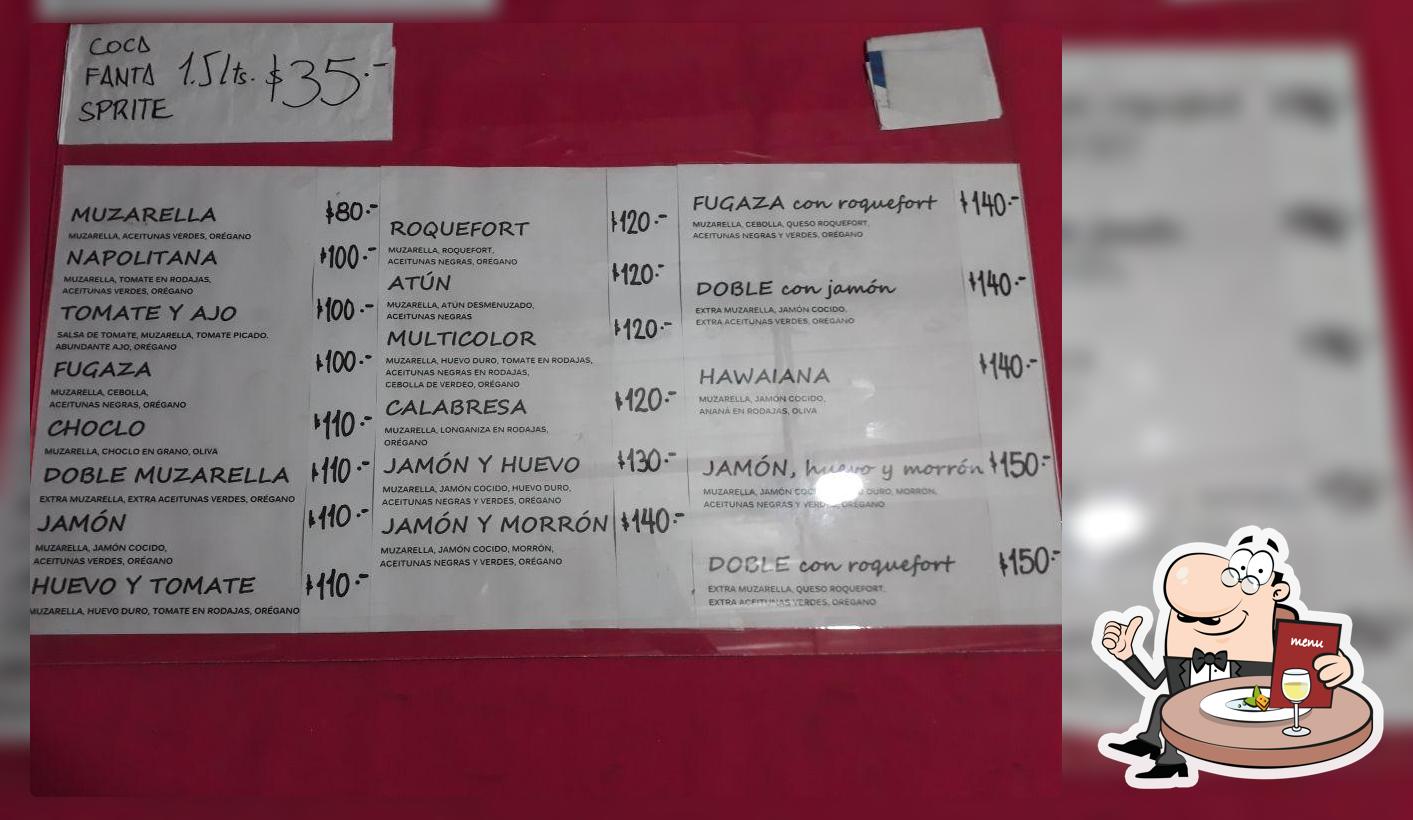 COCA
FANTA 1.5 lts. $35.-
SPRITE
MUZARELLA $80.-
MUZARELLA, ACEITUNAS VERDES, ORÉGANO
NAPOLITANA $100.-
MUZARELLA, TOMATE EN RODAJAS,
ACEITUNAS VERDES, ORÉGANO
TOMATE Y AJO $100.-
SALSA DE TOMATE, MUZARELLA, TOMATE PICADO.
ABUNDANTE AJO, ORÉGANO
FUGAZA $100.-
MUZARELLA, CEBOLLA,
ACEITUNAS NEGRAS, ORÉGANO
CHOCLO $110.-
MUZARELLA, CHOCLO EN GRANO, OLIVA
DOBLE MUZARELLA $110.-
EXTRA MUZARELLA, EXTRA ACEITUNAS VERDES, ORÉGANO
JAMÓN $110.-
MUZARELLA, JAMÓN COCIDO,
ACEITUNAS VERDES, ORÉGANO
HUEVO Y TOMATE $110.-
MUZARELLA, HUEVO DURO, TOMATE EN RODAJAS, ORÉGANO
ROQUEFORT $120.-
MUZARELLA, ROQUEFORT,
ACEITUNAS NEGRAS, ORÉGANO
ATÚN $120.-
MUZARELLA, ATÚN DESMENUZADO,
ACEITUNAS NEGRAS
MULTICOLOR $120.-
MUZARELLA, HUEVO DURO, TOMATE EN RODAJAS,
ACEITUNAS NEGRAS EN RODAJAS,
CEBOLLA DE VERDEO, ORÉGANO
CALABRESA $120.-
MUZARELLA, LONGANIZA EN RODAJAS,
ORÉGANO
JAMÓN Y HUEVO $130.-
MUZARELLA, JAMÓN COCIDO, HUEVO DURO,
ACEITUNAS NEGRAS Y VERDES, ORÉGANO
JAMÓN Y MORRÓN $140.-
MUZARELLA, JAMÓN COCIDO, MORRÓN,
ACEITUNAS NEGRAS Y VERDES, ORÉGANO
FUGAZA con roquefort $140.-
MUZARELLA, CEBOLLA, QUESO ROQUEFORT,
ACEITUNAS NEGRAS Y VERDES, ORÉGANO
DOBLE con jamón $140.-
EXTRA MUZARELLA, JAMÓN COCIDO,
EXTRA ACEITUNAS VERDES, ORÉGANO
HAWAIANA $140.-
MUZARELLA, JAMÓN COCIDO,
ANANÁ EN RODAJAS, OLIVA
JAMÓN, huevo y morrón $150.-
MUZARELLA, JAMÓN DURO, MORRÓN,
ACEITUNAS NEGRAS Y ORÉGANO
DOBLE con roquefort $150.-
EXTRA MUZARELLA, QUESO ROQUEFORT,
EXTRA ACEITUNAS VERDES, ORÉGANO
menu